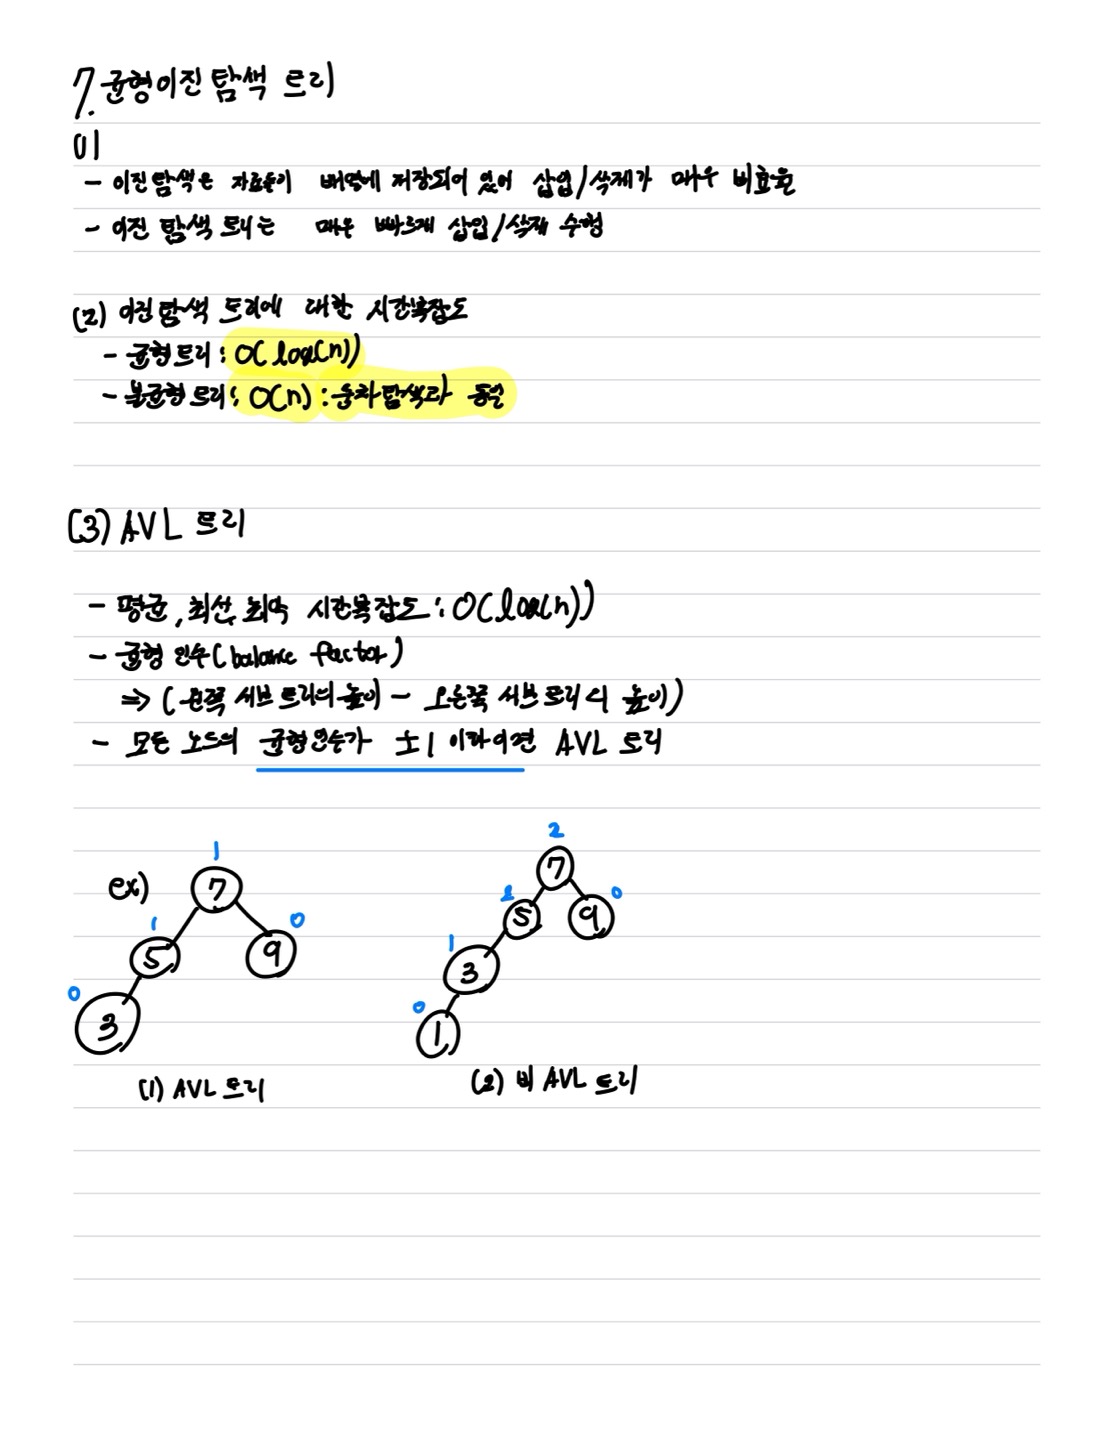 7. 균형이진 탐색 트리
(1)
- 이진탐색은 자료들이 배열에 저장되어 있어 삽입/삭제가 매우 비효율
- 이진 탐색 트리는 매우 빠르게 삽입/삭제 수행
(2) 이진 탐색 트리에 대한 시간복잡도
- 균형트리: O(log(n))
- 불균형 트리: O(n) : 순차탐색과 동일
(3) AVL 트리
- 평균, 최선, 최악 시간복잡도: O(log(n))
- 균형 인수(balance factor)
⇒ (왼쪽 서브 트리의 높이 - 오른쪽 서브 트리의 높이)
- 모든 노드의 균형인수가 ±1 이하이면 AVL 트리
2
1
ex) 7
7
2
0
5
9
1
0
5
9
1
3
0
3
0
1
(1) AVL 트리
(2) 비 AVL 트리